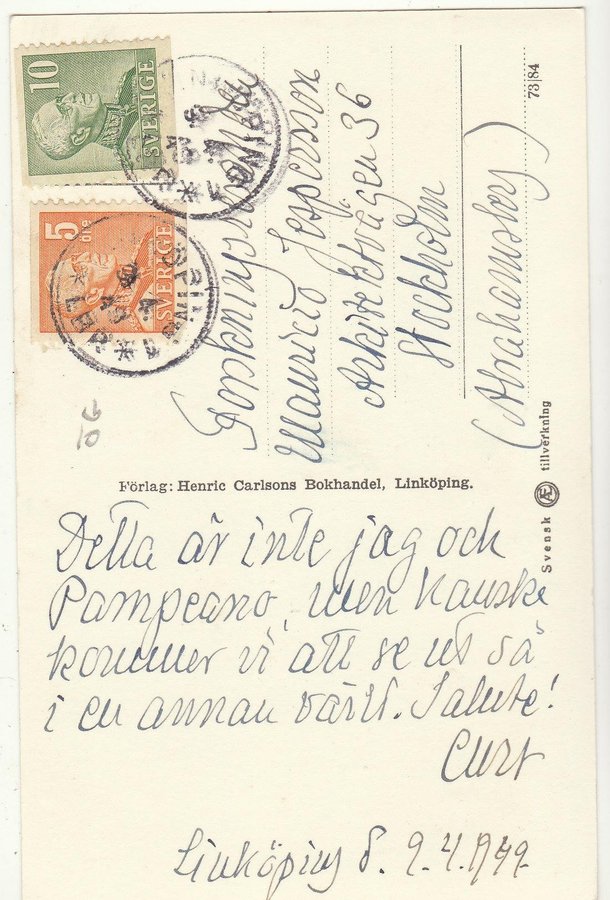 10
SVERIGE
5
öre
SVERIGE
Mauricio Jespersson
Arkitektvägen 36
Stockholm
(Abrahamsberg)
73/84
Svensk Æ tillverkning
Förlag: Henric Carlsons Bokhandel, Linköping.
Detta är inte jag och
Pampeano, men kanske
kommer vi att se ut så
i en annan värld. Salute!
Curt
Linköping d. 9.4.1949.